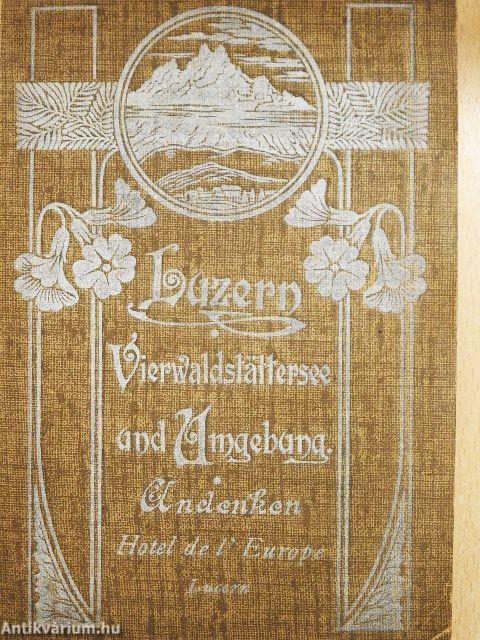 Luzern
Vierwaldstättersee
und Umgebung.
Andenken
Hotel de l'Europe
Lucern
Antikvárium.hu